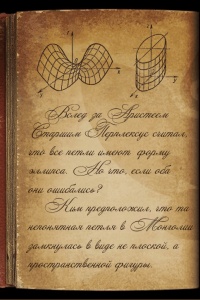 Вслед за Аристеем
Старшим Перплексус считал,
что все петли имеют форму
эллипса. Но что, если оба
они ошибались?
Ким предположил, что та
непонятная петля в Монголии
замкнулась в виде не плоской, а
пространственной фигуры.